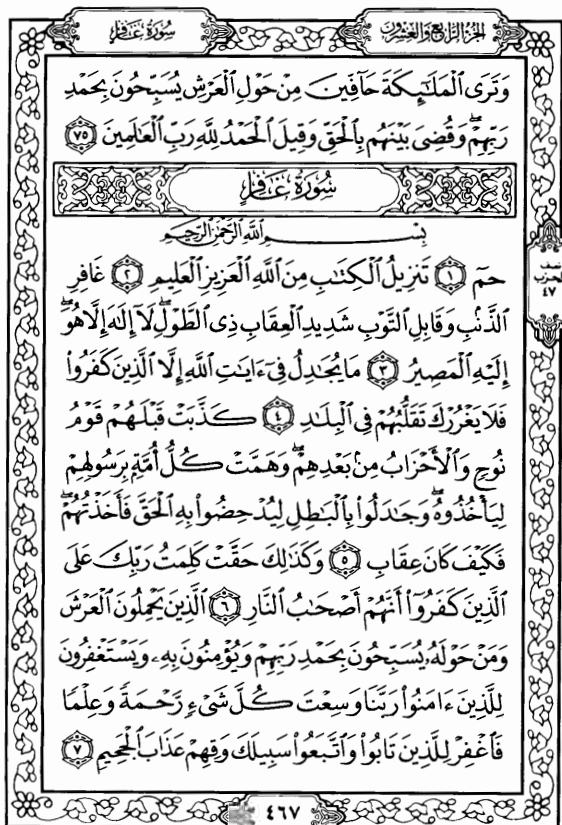 الجزء الرابع والعشرون
سُورَةُ غَافِرٍ
وَتَرَى ٱلْمَلَٰٓئِكَةَ حَآفِّينَ مِنْ حَوْلِ ٱلْعَرْشِ يُسَبِّحُونَ بِحَمْدِ
رَبِّهِمْۖ وَقُضِىَ بَيْنَهُم بِٱلْحَقِّ وَقِيلَ ٱلْحَمْدُ لِلَّهِ رَبِّ ٱلْعَٰلَمِينَ ٧٥
سُورَةُ غَافِرٍ
بِسْمِ ٱللَّهِ ٱلرَّحْمَٰنِ ٱلرَّحِيمِ
حمٓ ١ تَنزِيلُ ٱلْكِتَٰبِ مِنَ ٱللَّهِ ٱلْعَزِيزِ ٱلْعَلِيمِ ٢ غَافِرِ
ٱلذَّنۢبِ وَقَابِلِ ٱلتَّوْبِ شَدِيدِ ٱلْعِقَابِ ذِى ٱلطَّوْلِۖ لَآ إِلَٰهَ إِلَّا هُوَۖ
إِلَيْهِ ٱلْمَصِيرُ ٣ مَا يُجَٰدِلُ فِىٓ ءَايَٰتِ ٱللَّهِ إِلَّا ٱلَّذِينَ كَفَرُوا۟
فَلَا يَغْرُرْكَ تَقَلُّبُهُمْ فِى ٱلْبِلَٰدِ ٤ كَذَّبَتْ قَبْلَهُمْ قَوْمُ
نُوحٍ وَٱلْأَحْزَابُ مِنۢ بَعْدِهِمْۖ وَهَمَّتْ كُلُّ أُمَّةٍۭ بِرَسُولِهِمْ
لِيَأْخُذُوهُۖ وَجَٰدَلُوا۟ بِٱلْبَٰطِلِ لِيُدْحِضُوا۟ بِهِ ٱلْحَقَّ فَأَخَذْتُهُمْۖ
فَكَيْفَ كَانَ عِقَابِ ٥ وَكَذَٰلِكَ حَقَّتْ كَلِمَتُ رَبِّكَ عَلَى
ٱلَّذِينَ كَفَرُوٓا۟ أَنَّهُمْ أَصْحَٰبُ ٱلنَّارِ ٦ ٱلَّذِينَ يَحْمِلُونَ ٱلْعَرْشَ
وَمَنْ حَوْلَهُۥ يُسَبِّحُونَ بِحَمْدِ رَبِّهِمْ وَيُؤْمِنُونَ بِهِۦ وَيَسْتَغْفِرُونَ
لِلَّذِينَ ءَامَنُوا۟ رَبَّنَا وَسِعْتَ كُلَّ شَىْءٍ رَّحْمَةً وَعِلْمًا
فَٱغْفِرْ لِلَّذِينَ تَابُوا۟ وَٱتَّبَعُوا۟ سَبِيلَكَ وَقِهِمْ عَذَابَ ٱلْجَحِيمِ ٧
نصف
الحزب
٤٧
٤٦٧